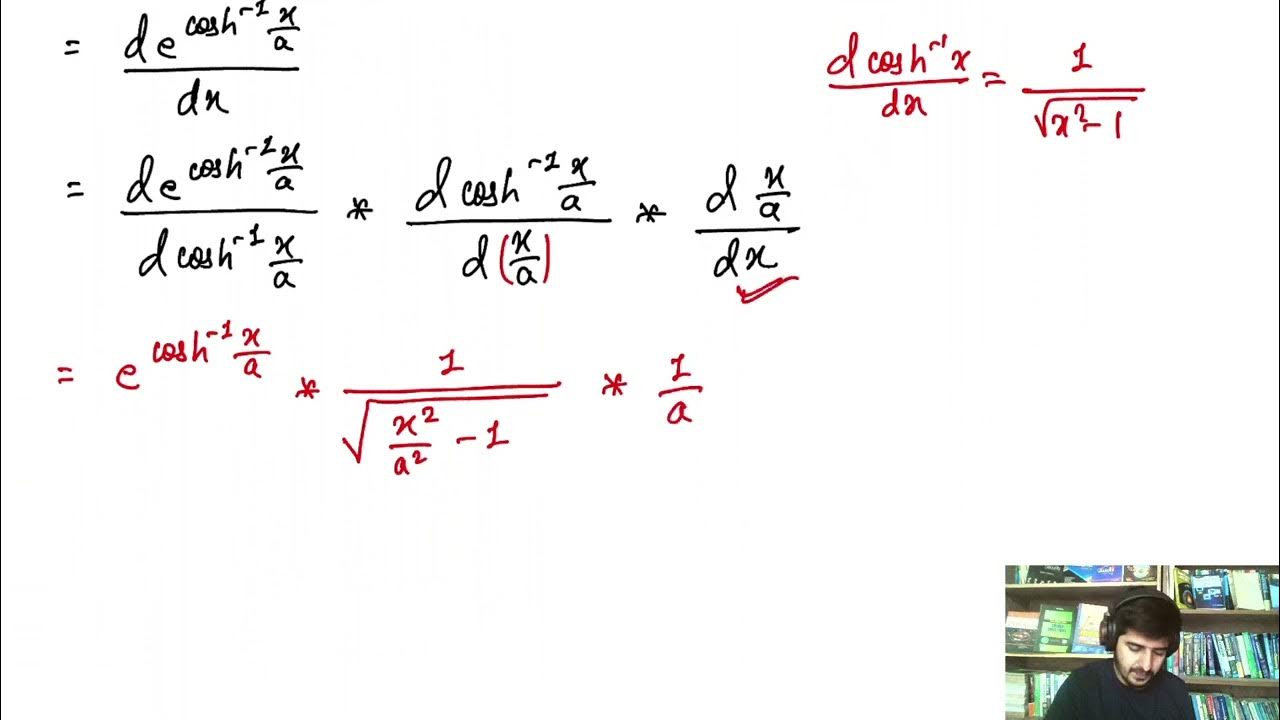 = d e^cosh⁻¹ x/a / dx
d cosh⁻¹ x / dx = 1 / √x² - 1
= d e^cosh⁻¹ x/a / d cosh⁻¹ x/a * d cosh⁻¹ x/a / d (x/a) * d x/a / dx
= e^cosh⁻¹ x/a * 1 / √x²/a² - 1 * 1/a